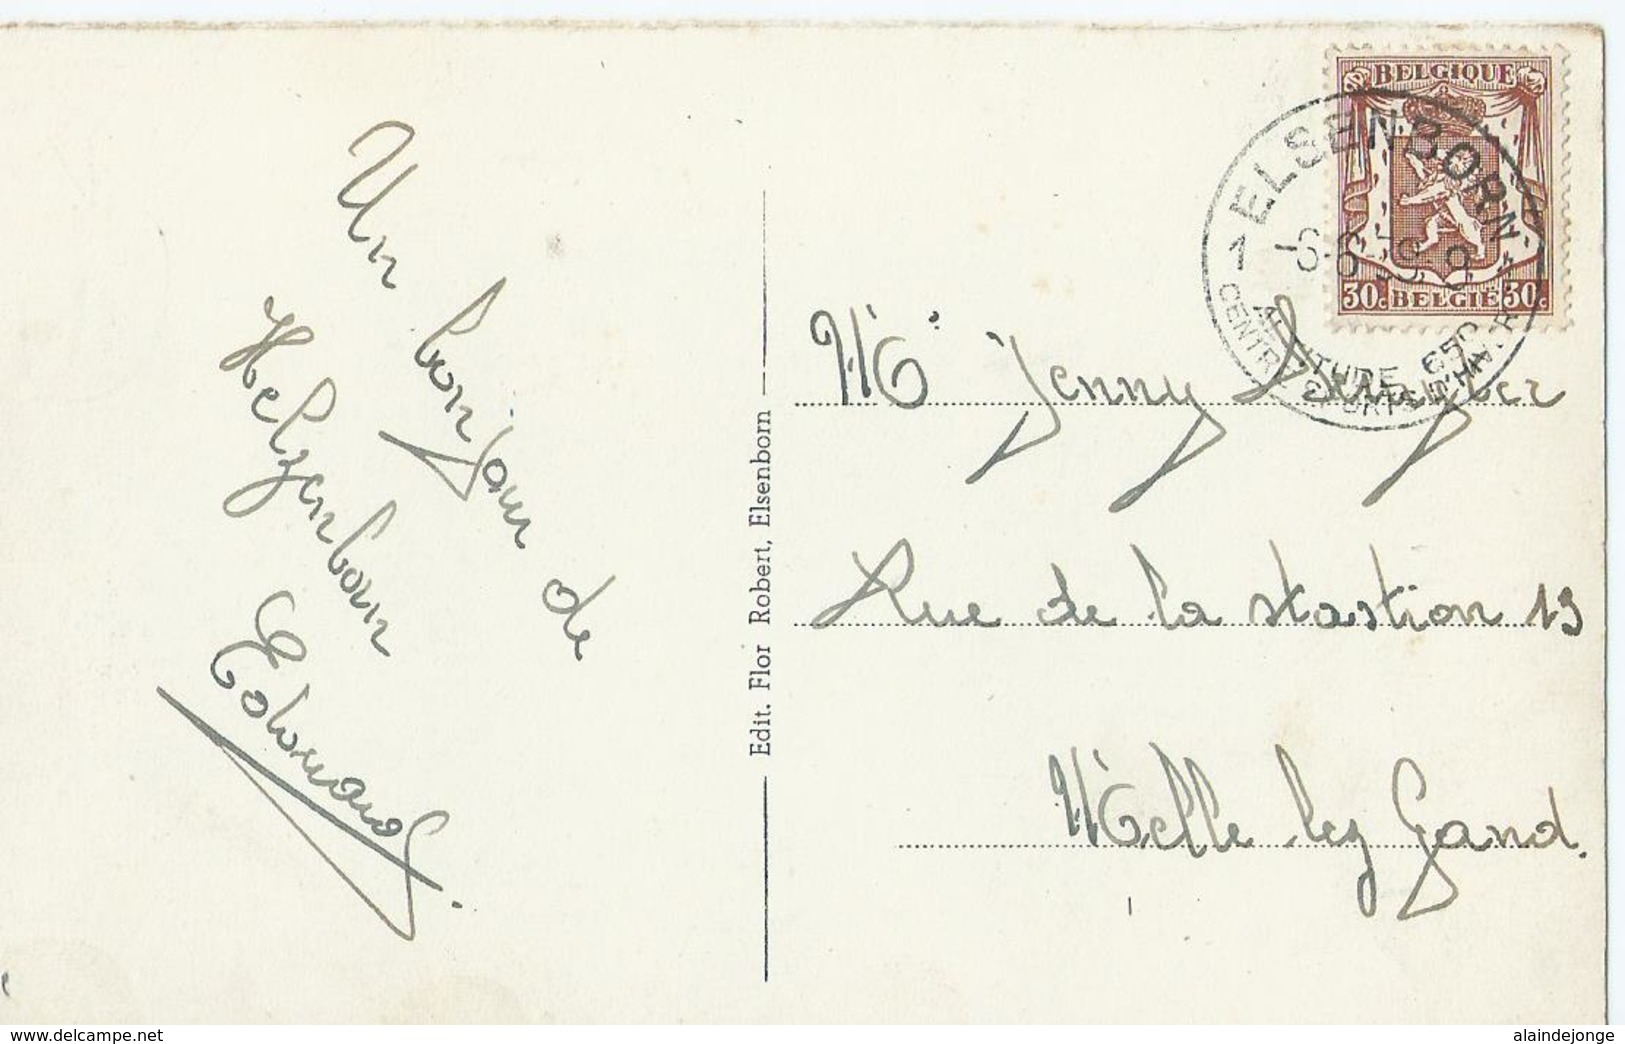 Un bonjour de
Helzenborn
Edmond.
Edit. Flor Robert, Elsenborn
BELGIQUE
30c BELGIË 30c
ELSENBORN
1 -6-6-39-9
ALTITUDE 650
CENTRE SPORTS D'HIVER
M' Jenny
Rue de la stastion 13
Melle lez Gand.
www.delcampe.net
alaindejonge